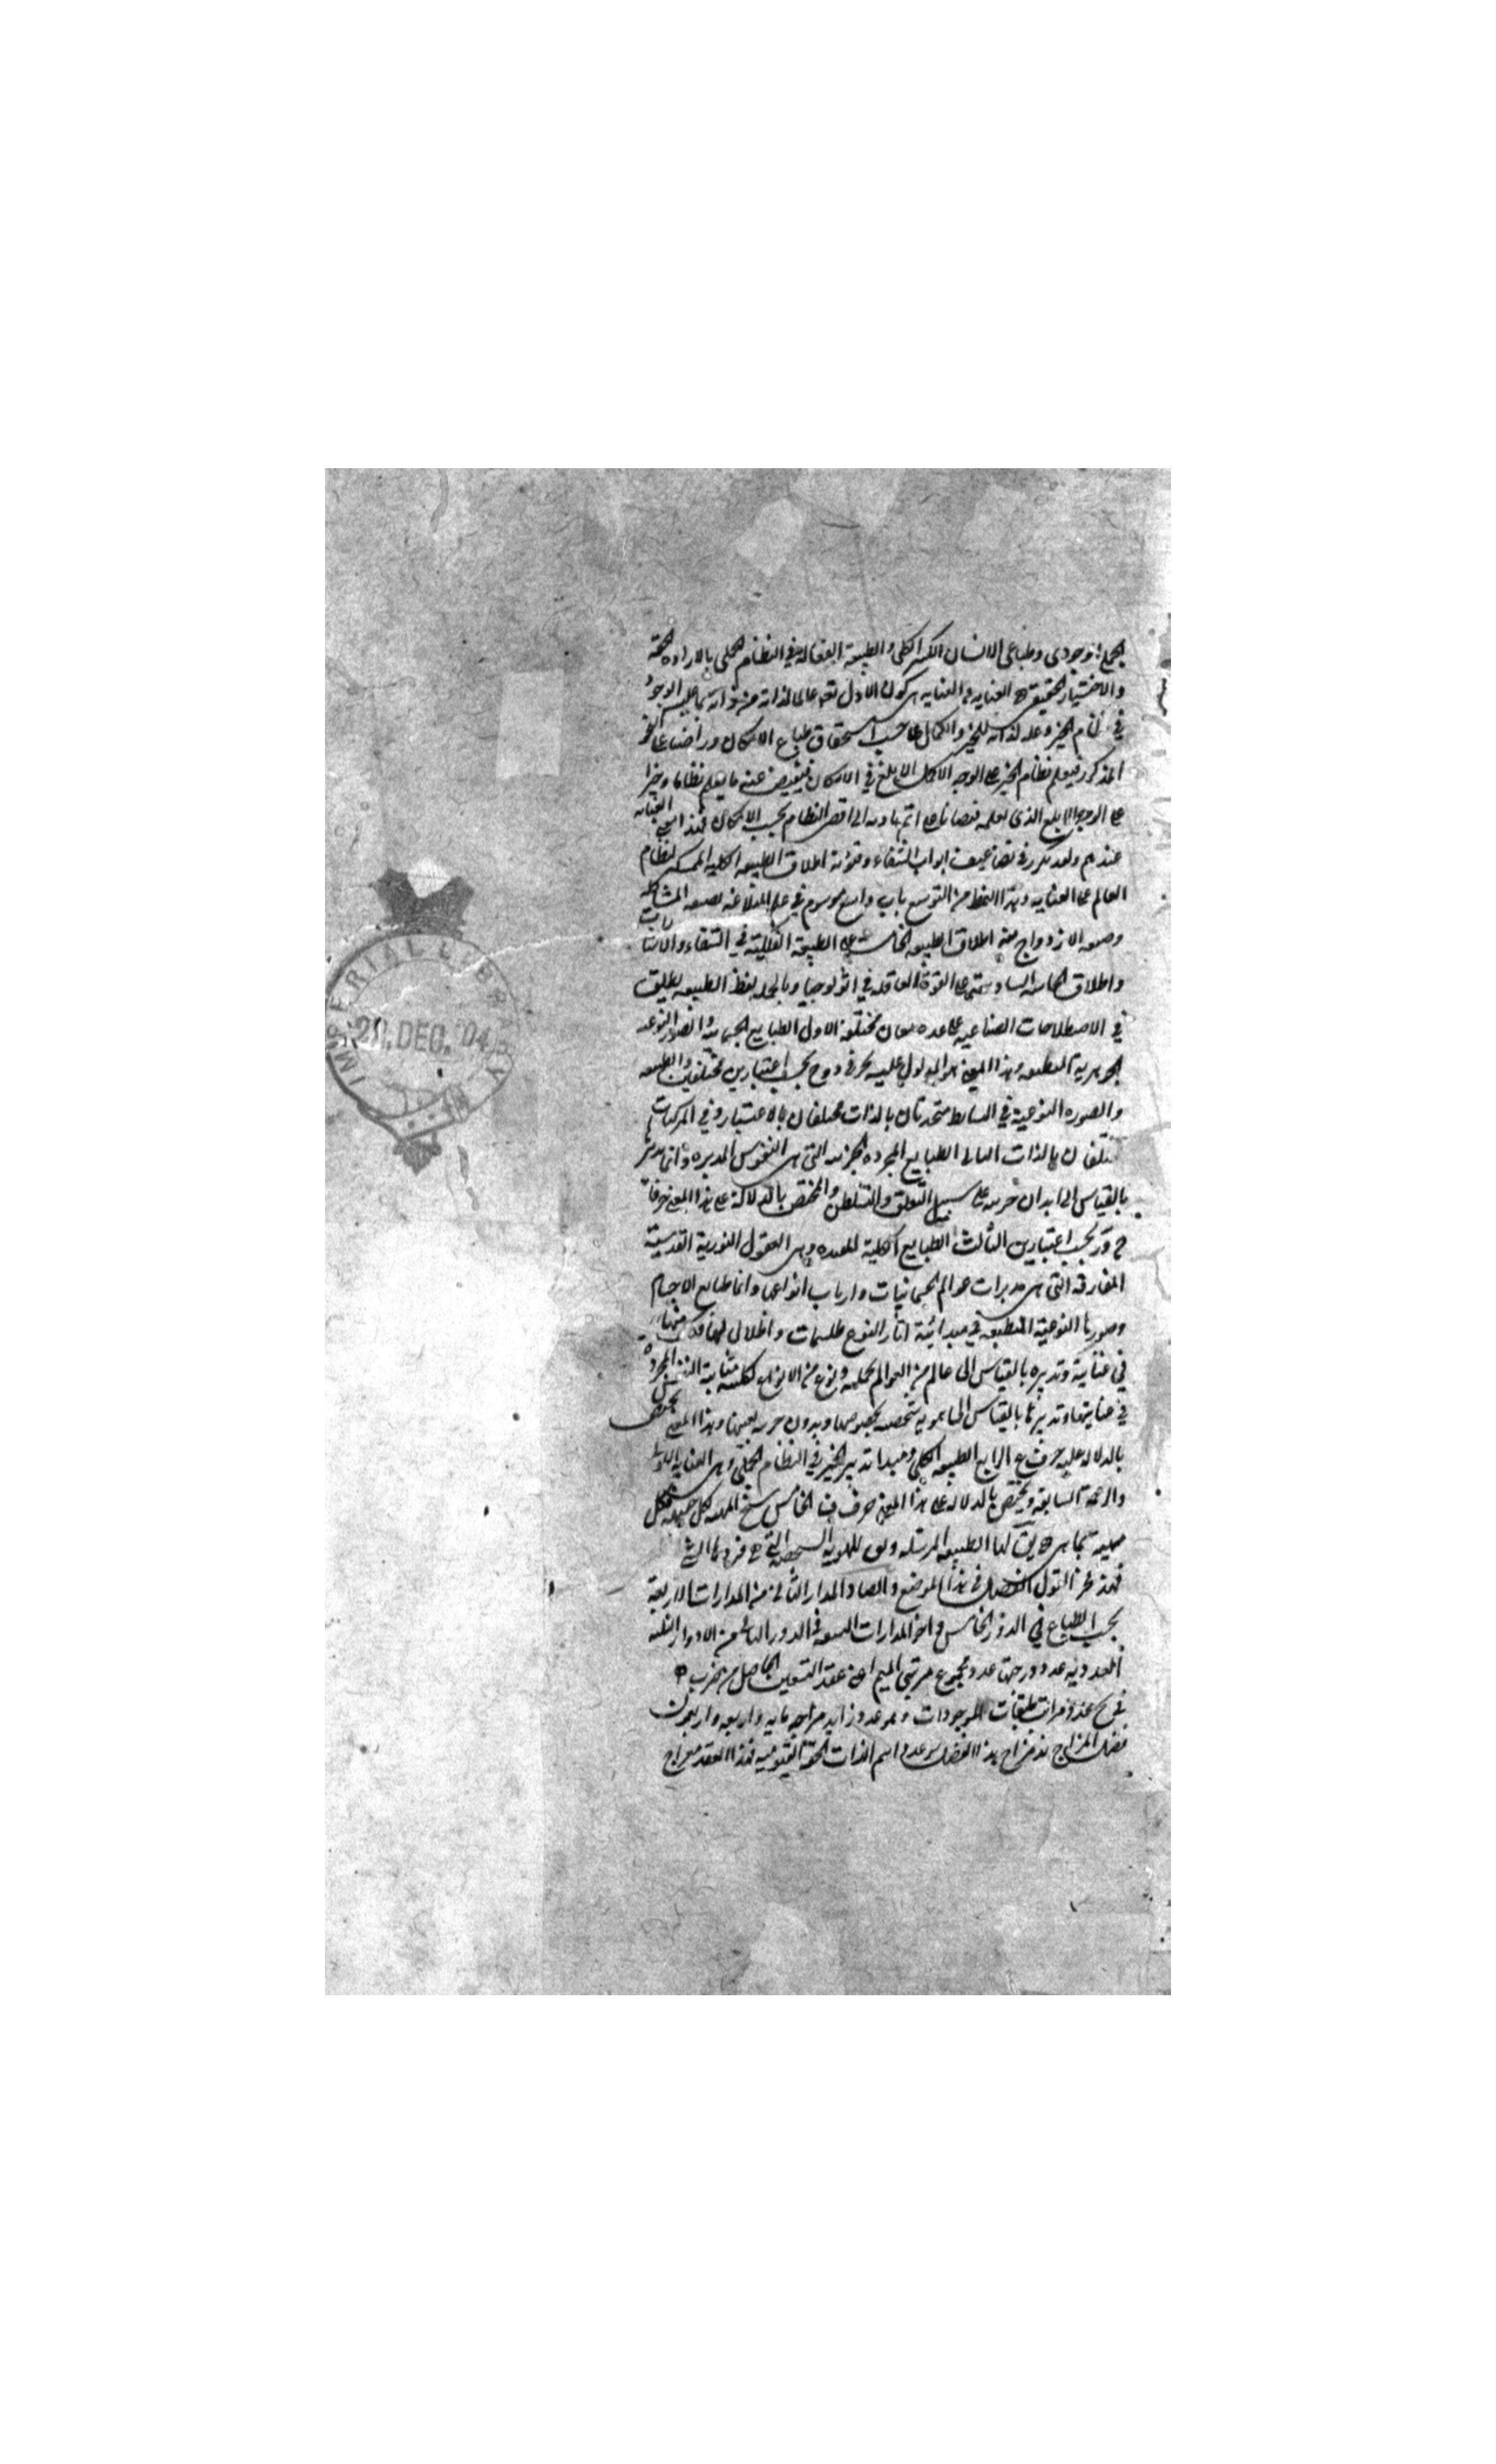 الجملي الوجودي وطباعي الانسان الكبير الكلي والطبيعة الفعالة في النظام الجملي بالارادة الحقة
والاختيار الحقيقي هو العناية والعناية هي كون الاول تعالى عالما لذاته من ذاته بما عليه الوجود
في نظام الخير وعلة لذاته للخير والكمال على حسب استحقاق طباع الامكان وراضيا على النحو
المذكور فيعلم نظام الخير على الوجه الاكمل الابلغ في الامكان فيفيض عنه ما يعلم نظاما وخيرا
على الوجه الابلغ الذي يعلمه فيضانا على اتم تادية الى اقصى النظام بحسب الامكان فهذا معنى العناية
عندهم ولقد تكرر في تضاعيف ابواب الشفاء وفنونه اطلاق الطبيعة الكلية الممسكة لنظام
العالم على العناية وهذا النمط من التوسع باب واسع موسوم في علم البلاغة بصنعة المشاكلة
وصنعة الازدواج ومنه اطلاق الطبيعة الخامسة على الطبيعة الفلكية في الشفاء والاشارات
واطلاق الحاسة السادسة على القوة العاقلة في اثولوجيا وبالجملة لفظ الطبيعة يطلق
في الاصطلاحات الصناعية على عدة معان مختلفة الاول الطبايع الجسمانية والصور النوعية
الجوهرية المنطبعة وهذا المعنى هو المدلول عليه بحرفي د و ح بحسب اعتبارين مختلفين والطبيعة
والصورة النوعية في البسائط متحدتان بالذات مختلفتان بالاعتبار وفي المركبات
مختلفتان بالذات الثاني الطبايع المجردة الجزئية التي هي النفوس المدبرة وانما تدبر
بالقياس الى ابدان جزئية على سبيل التعلق والتسلطن والمختص بالدلالة على هذا المعنى حرفا
ح و ر بحسب اعتبارين الثالث الطبايع الكلية وهي العقول النورية القدسية
المفارقة التي هي مدبرات عوالم الجسمانيات وارباب انواعها وانما طبايع الاجسام
وصورها النوعية المنطبعة في مبدائية اثار النوع طلسمات واظلال لها وكل منها
في عناية وتدبيره بالقياس الى عالم من العوالم بجملته ونوع من الانواع بكليته بمثابة النفس المجردة
في عنايتها وتدبيرها بالقياس الى ما هويته شخصية بخصوصها وبدون جزئية بعينها وهذا المعنى يختص
بالدلالة عليه حرف ع الرابع الطبيعة الكلي ومبدا تدبير الخير في النظام الجملي وهي العناية الاولى
والرحمة السابقة ويختص بالدلالة على هذا المعنى حرف الخامس سنخ المهية لكل حقيقة فكل
مهية بما هي هي يقال لها الطبيعة المرسلة وهي للهوية الشخصية التي هي فرد ما
فهذا طرز القول الفصل في هذا الموضع والصاد المدار الثالث من المدارات الاربعة
بحسب الطباع في الدور الخامس واخر المدارات التسعة في الدور الثالث من الادوار الثلثة
العددية عدد درجتها عدد مجموع مرتبتي الميم اعني عقد التسعين الحاصل من ضرب
في عدد مراتب طبقات الموجودات وهو عدد زايد مزاجه مايه واربعه واربعون
فضل المزاج منه مزاج هذا الفضل هو عدد اسم الذات الحقة القيومية فهذا العقد مزاج
IMPERIAL LIBRARY
20.DEC.04